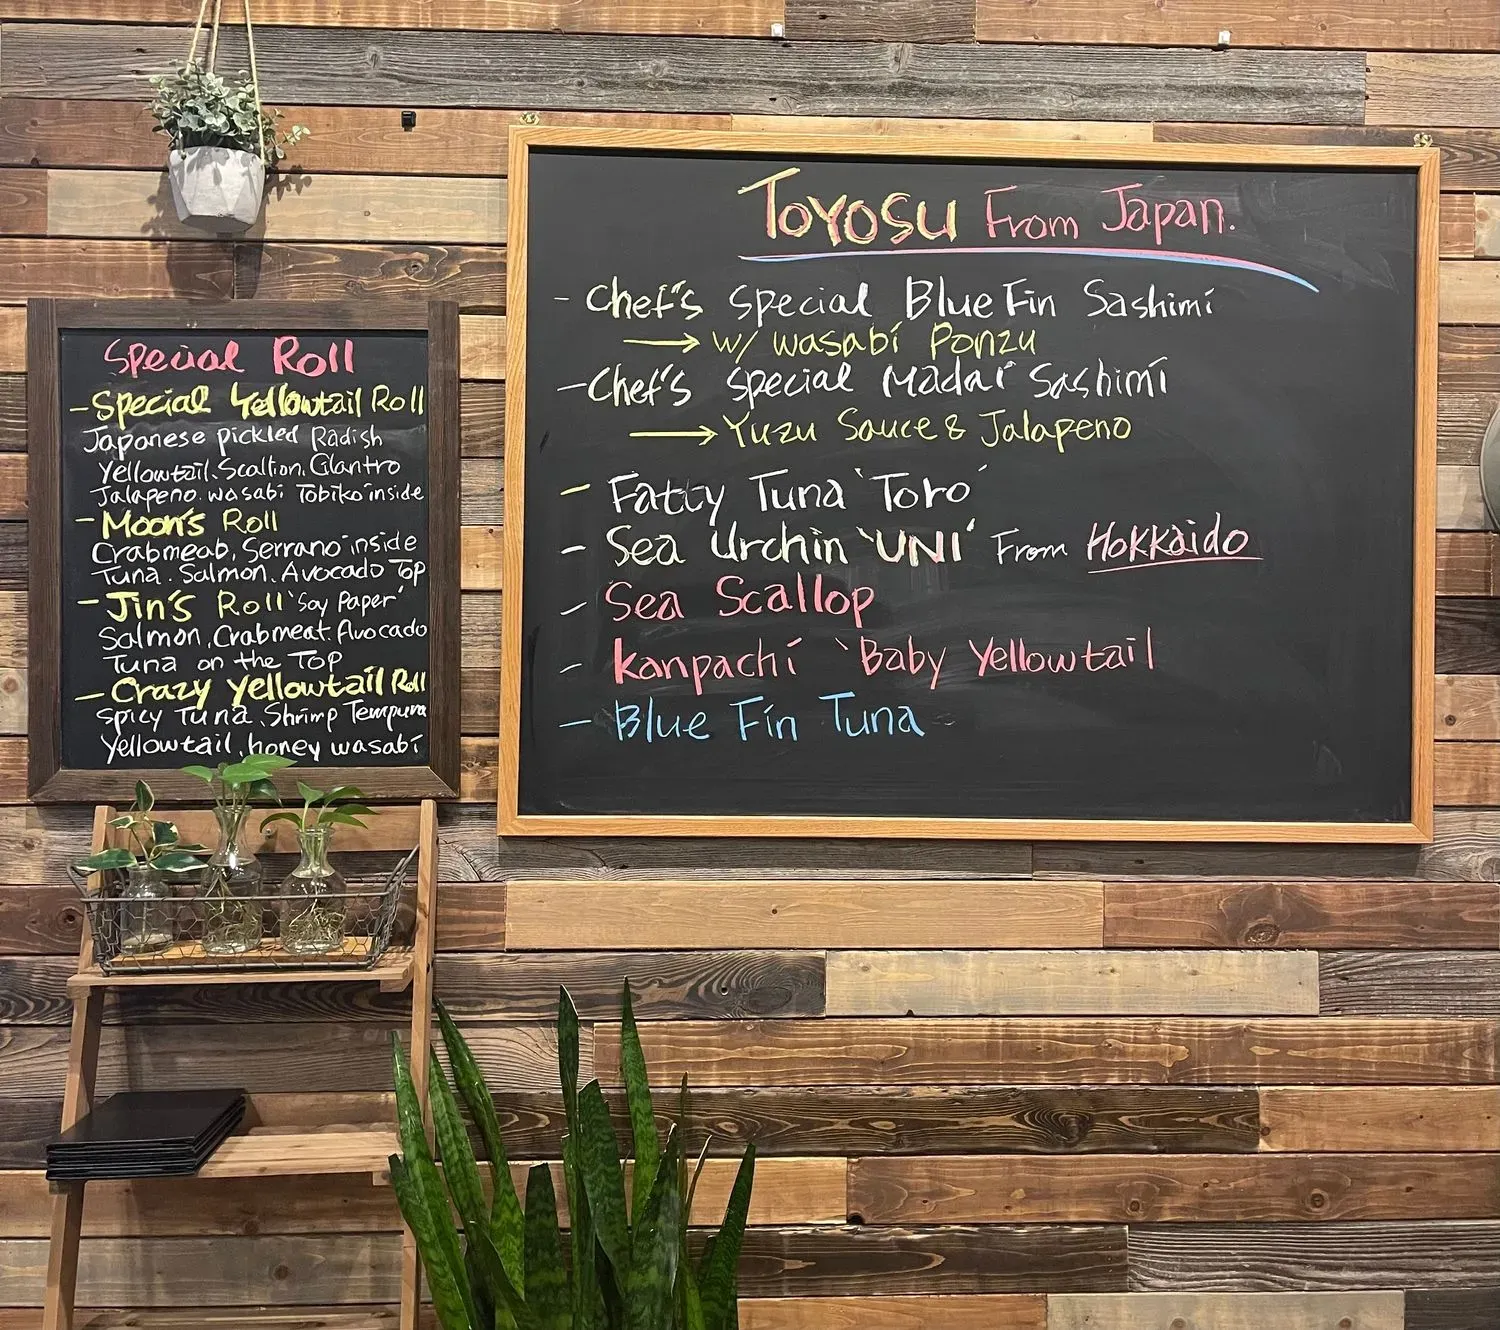 Special Roll
- Special Yellowtail Roll
Japanese pickled Radish
Yellowtail. Scallion. Cilantro
Jalapeno. wasabi Tobiko inside
- Moon's Roll
Crabmeab, Serrano inside
Tuna. Salmon. Avocado Top
- Jin's Roll 'Soy Paper'
Salmon, Crabmeat. Avocado
Tuna on the Top
- Crazy Yellowtail Roll
Spicy Tuna, Shrimp Tempura
Yellowtail, honey wasabi
Toyosu From Japan.
- Chef's special Blue Fin Sashimi
→ w/ wasabi Ponzu
- Chef's special Madai Sashimi
→ Yuzu Sauce & Jalapeno
- Fatty Tuna 'Toro'
- Sea Urchin 'UNI' From Hokkaido
- Sea Scallop
- Kanpachi 'Baby Yellowtail
- Blue Fin Tuna